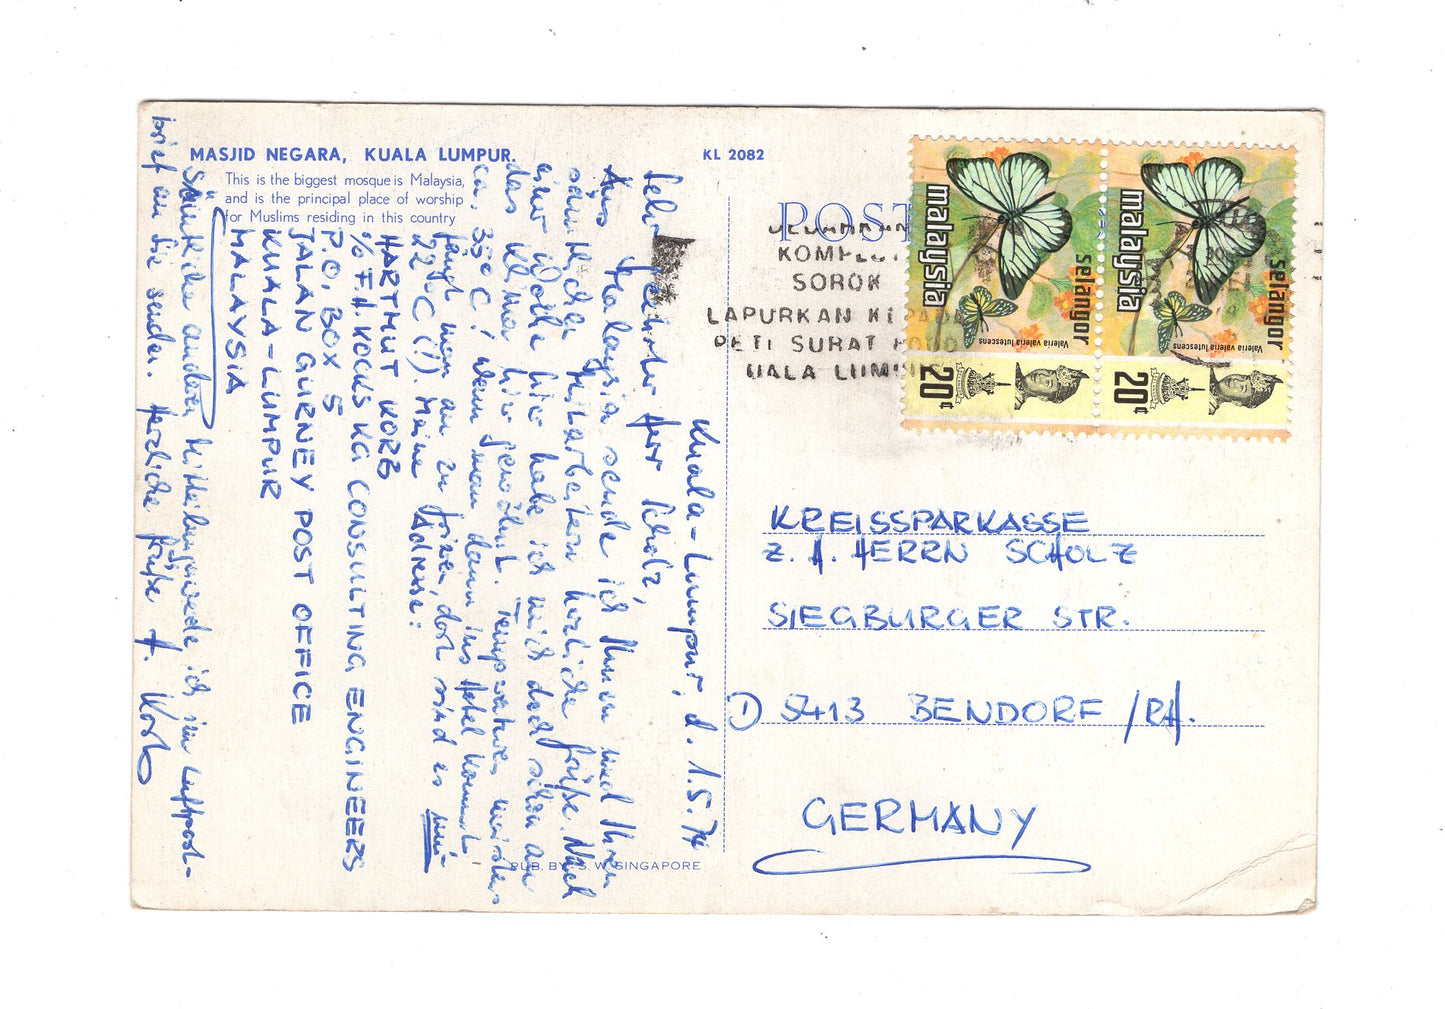 MASJID NEGARA, KUALA LUMPUR.
This is the biggest mosque is Malaysia,
and is the principal place of worship
for Muslims residing in this country
KL 2082
POST
KOMPLOT
SOROK
LAPURKAN KEPADA
PETI SURAT
UALA LUMP
malaysia
selangor
Valeria valeria lutescens
20¢
malaysia
selangor
Valeria valeria lutescens
20¢
Kuala-Lumpur, d. 1.5.74
Sehr geehrter Herr Scholz,
Aus Malaysia sende ich Ihnen und Ihren
sämtlichen Mitarbeitern herzliche Grüße. Nach
einer Woche hier habe ich mich doch schon an
das Klima hier gewöhnt. Temperaturen mindestens
ca. 35°C! Wenn man dann ins Hotel kommt
fängt man an zu frieren, dort sind es nur
22°C (!). Meine Adresse:
HARTMUT KORB
c/o F.H. KOCKS KG CONSULTING ENGINEERS
P.O. BOX 5
JALAN GURNEY POST OFFICE
KUALA-LUMPUR
MALAYSIA
Sämtliche anderen Mitteilungen werde ich im Luftpost-
brief an Sie senden. Herzliche Grüße H. Korb
KREISSPARKASSE
z. H. HERRN SCHOLZ
SIEGBURGER STR.
5413 BENDORF /RH.
GERMANY
PUB. BY: S. W. SINGAPORE